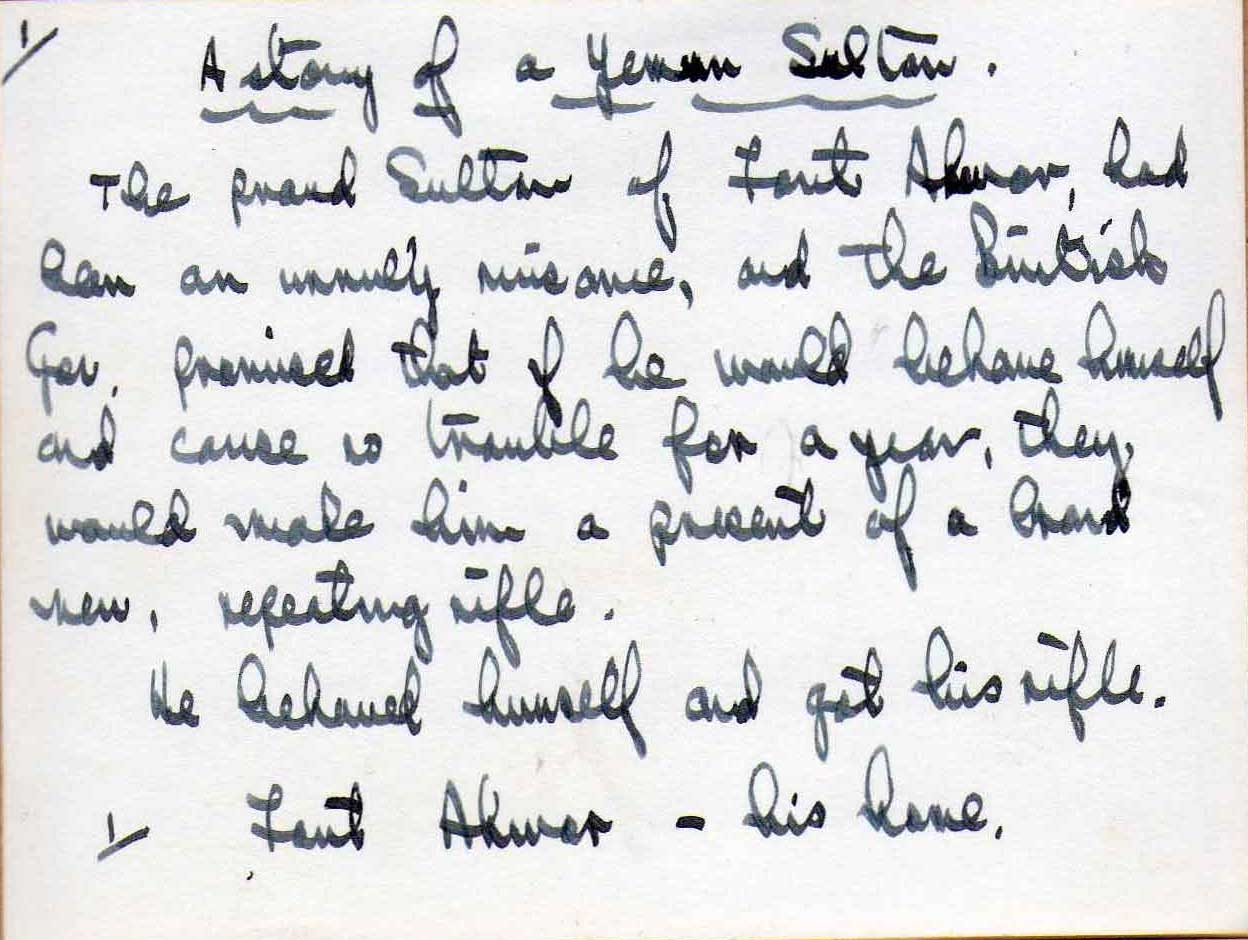 1/
A story of a Yemen Sultan.
The proud Sultan of Fort Ahwar, had
been an unruly nuisance, and the British
Gov. promised that if he would behave himself
and cause no trouble for a year, they
would make him a present of a brand
new, repeating rifle.
He behaved himself and got his rifle.
1/ Fort Ahwar - his home.